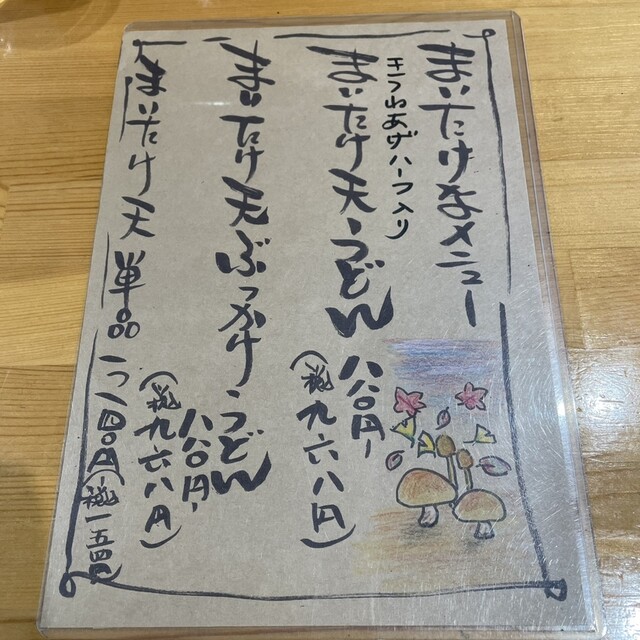 まいたけなメニュー
きつねあげハーフ入り
まいたけ天うどん
八八〇円-
(税 九六八円)
まいたけ天ぶっかけうどん
八八〇円-
(税 九六八円)
まいたけ天 単品 一つ 一四〇円-(税 一五四円)